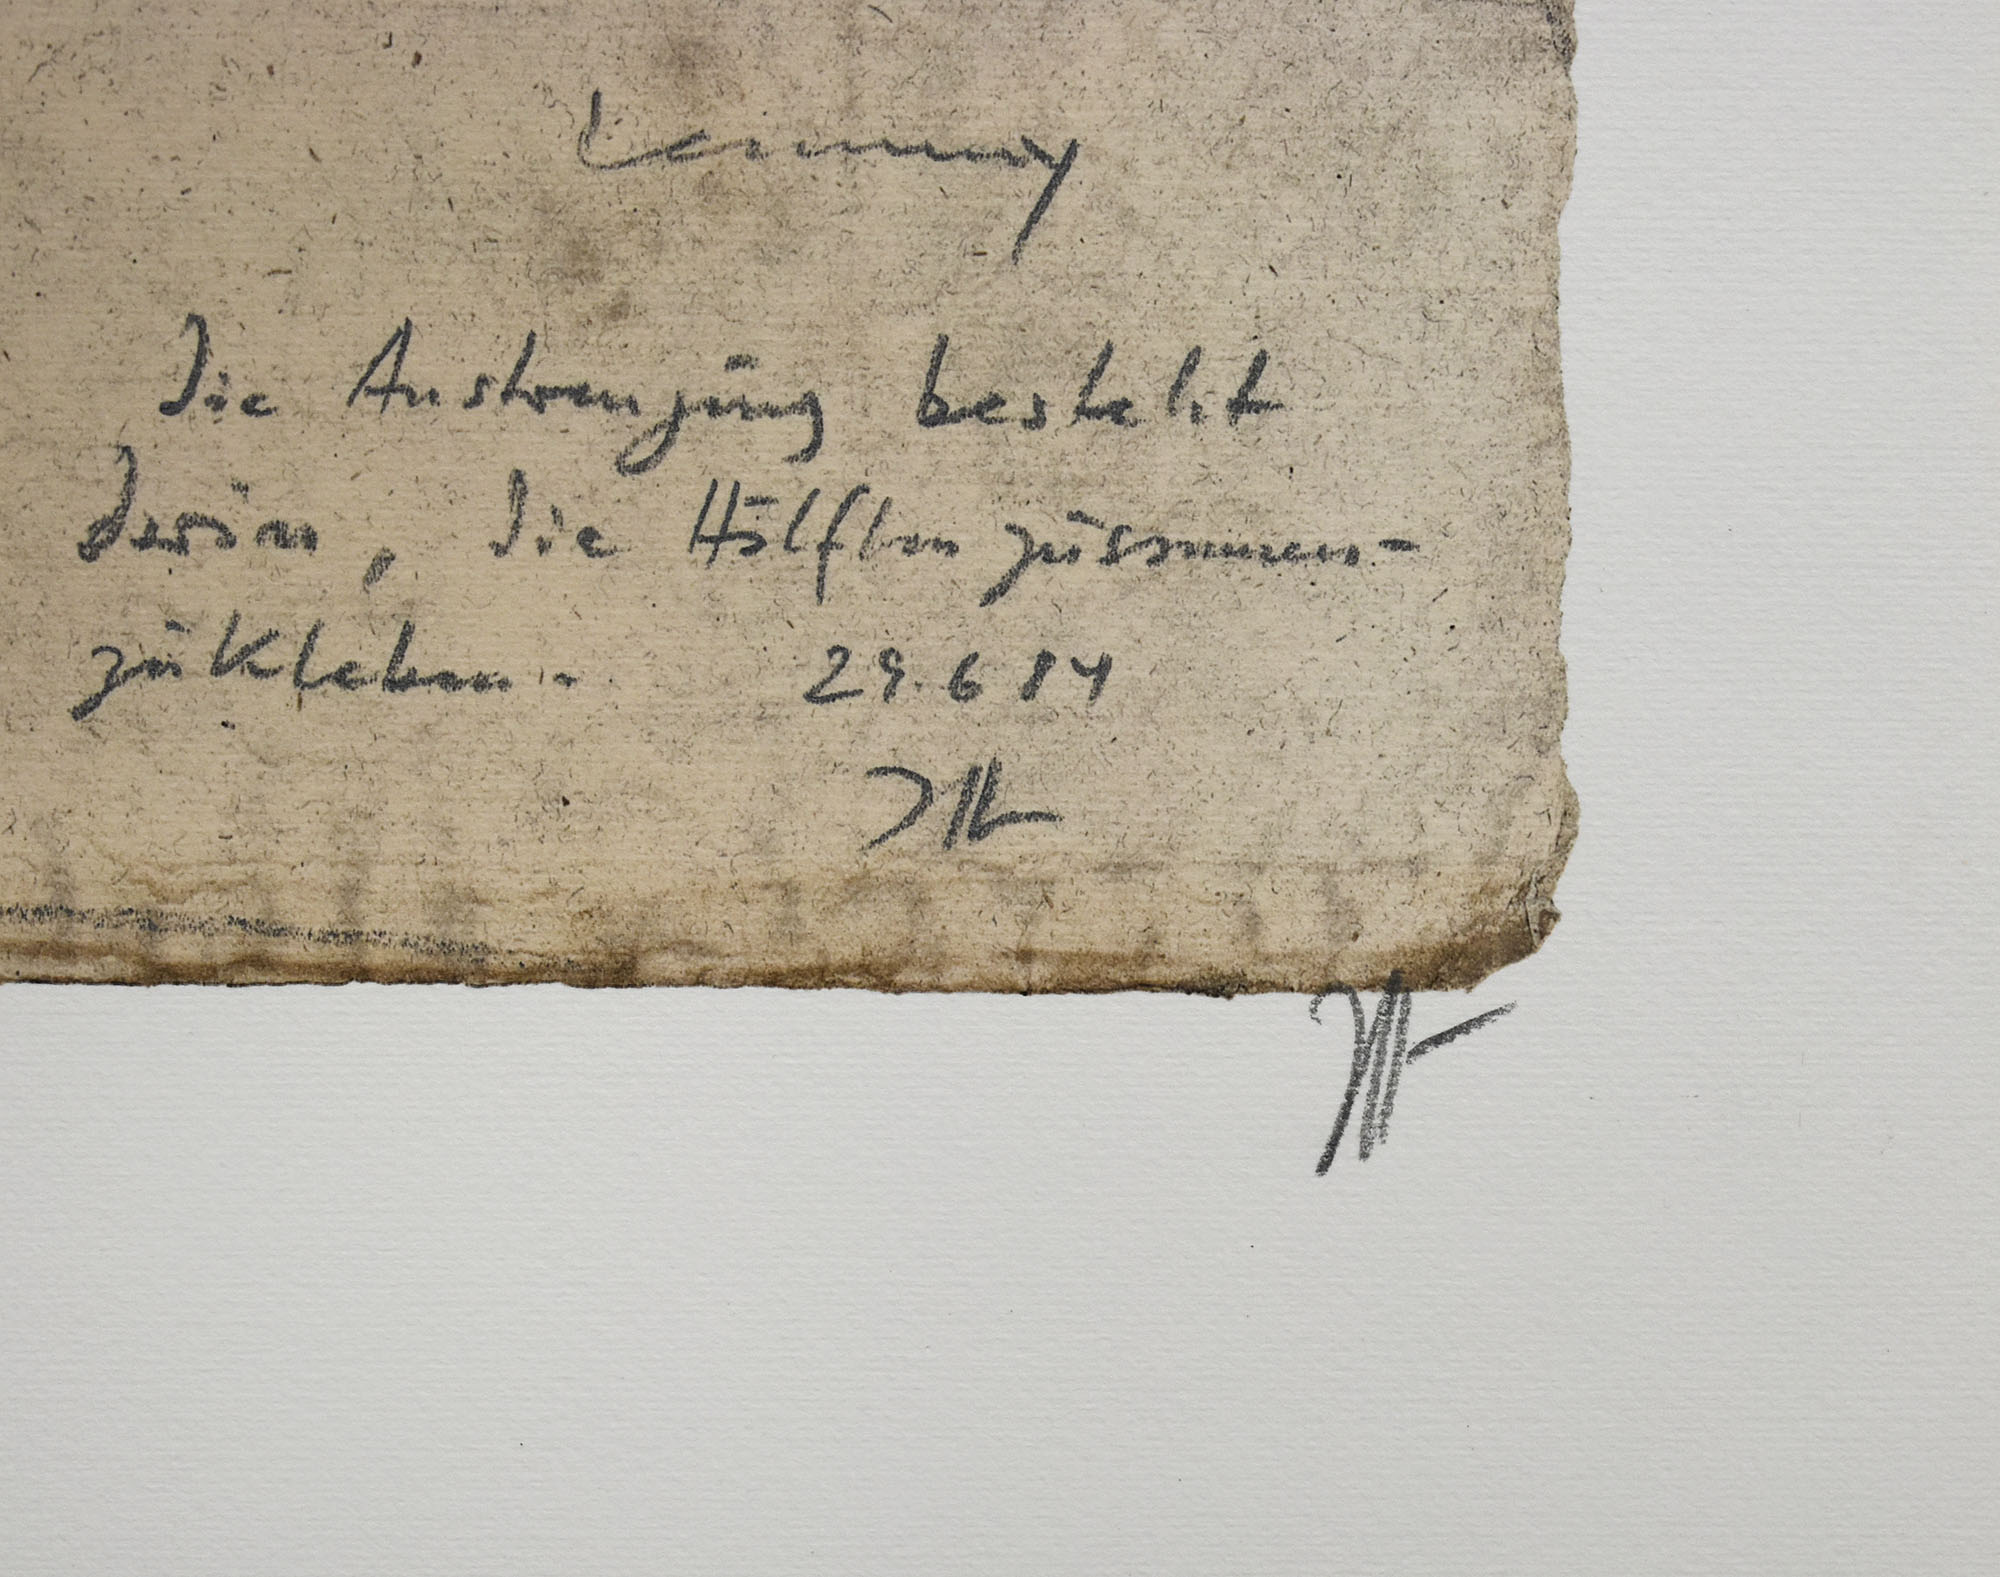 Die Anstrengung besteht
darin, die Hälften zusammen-
zukleben. 29.6 84